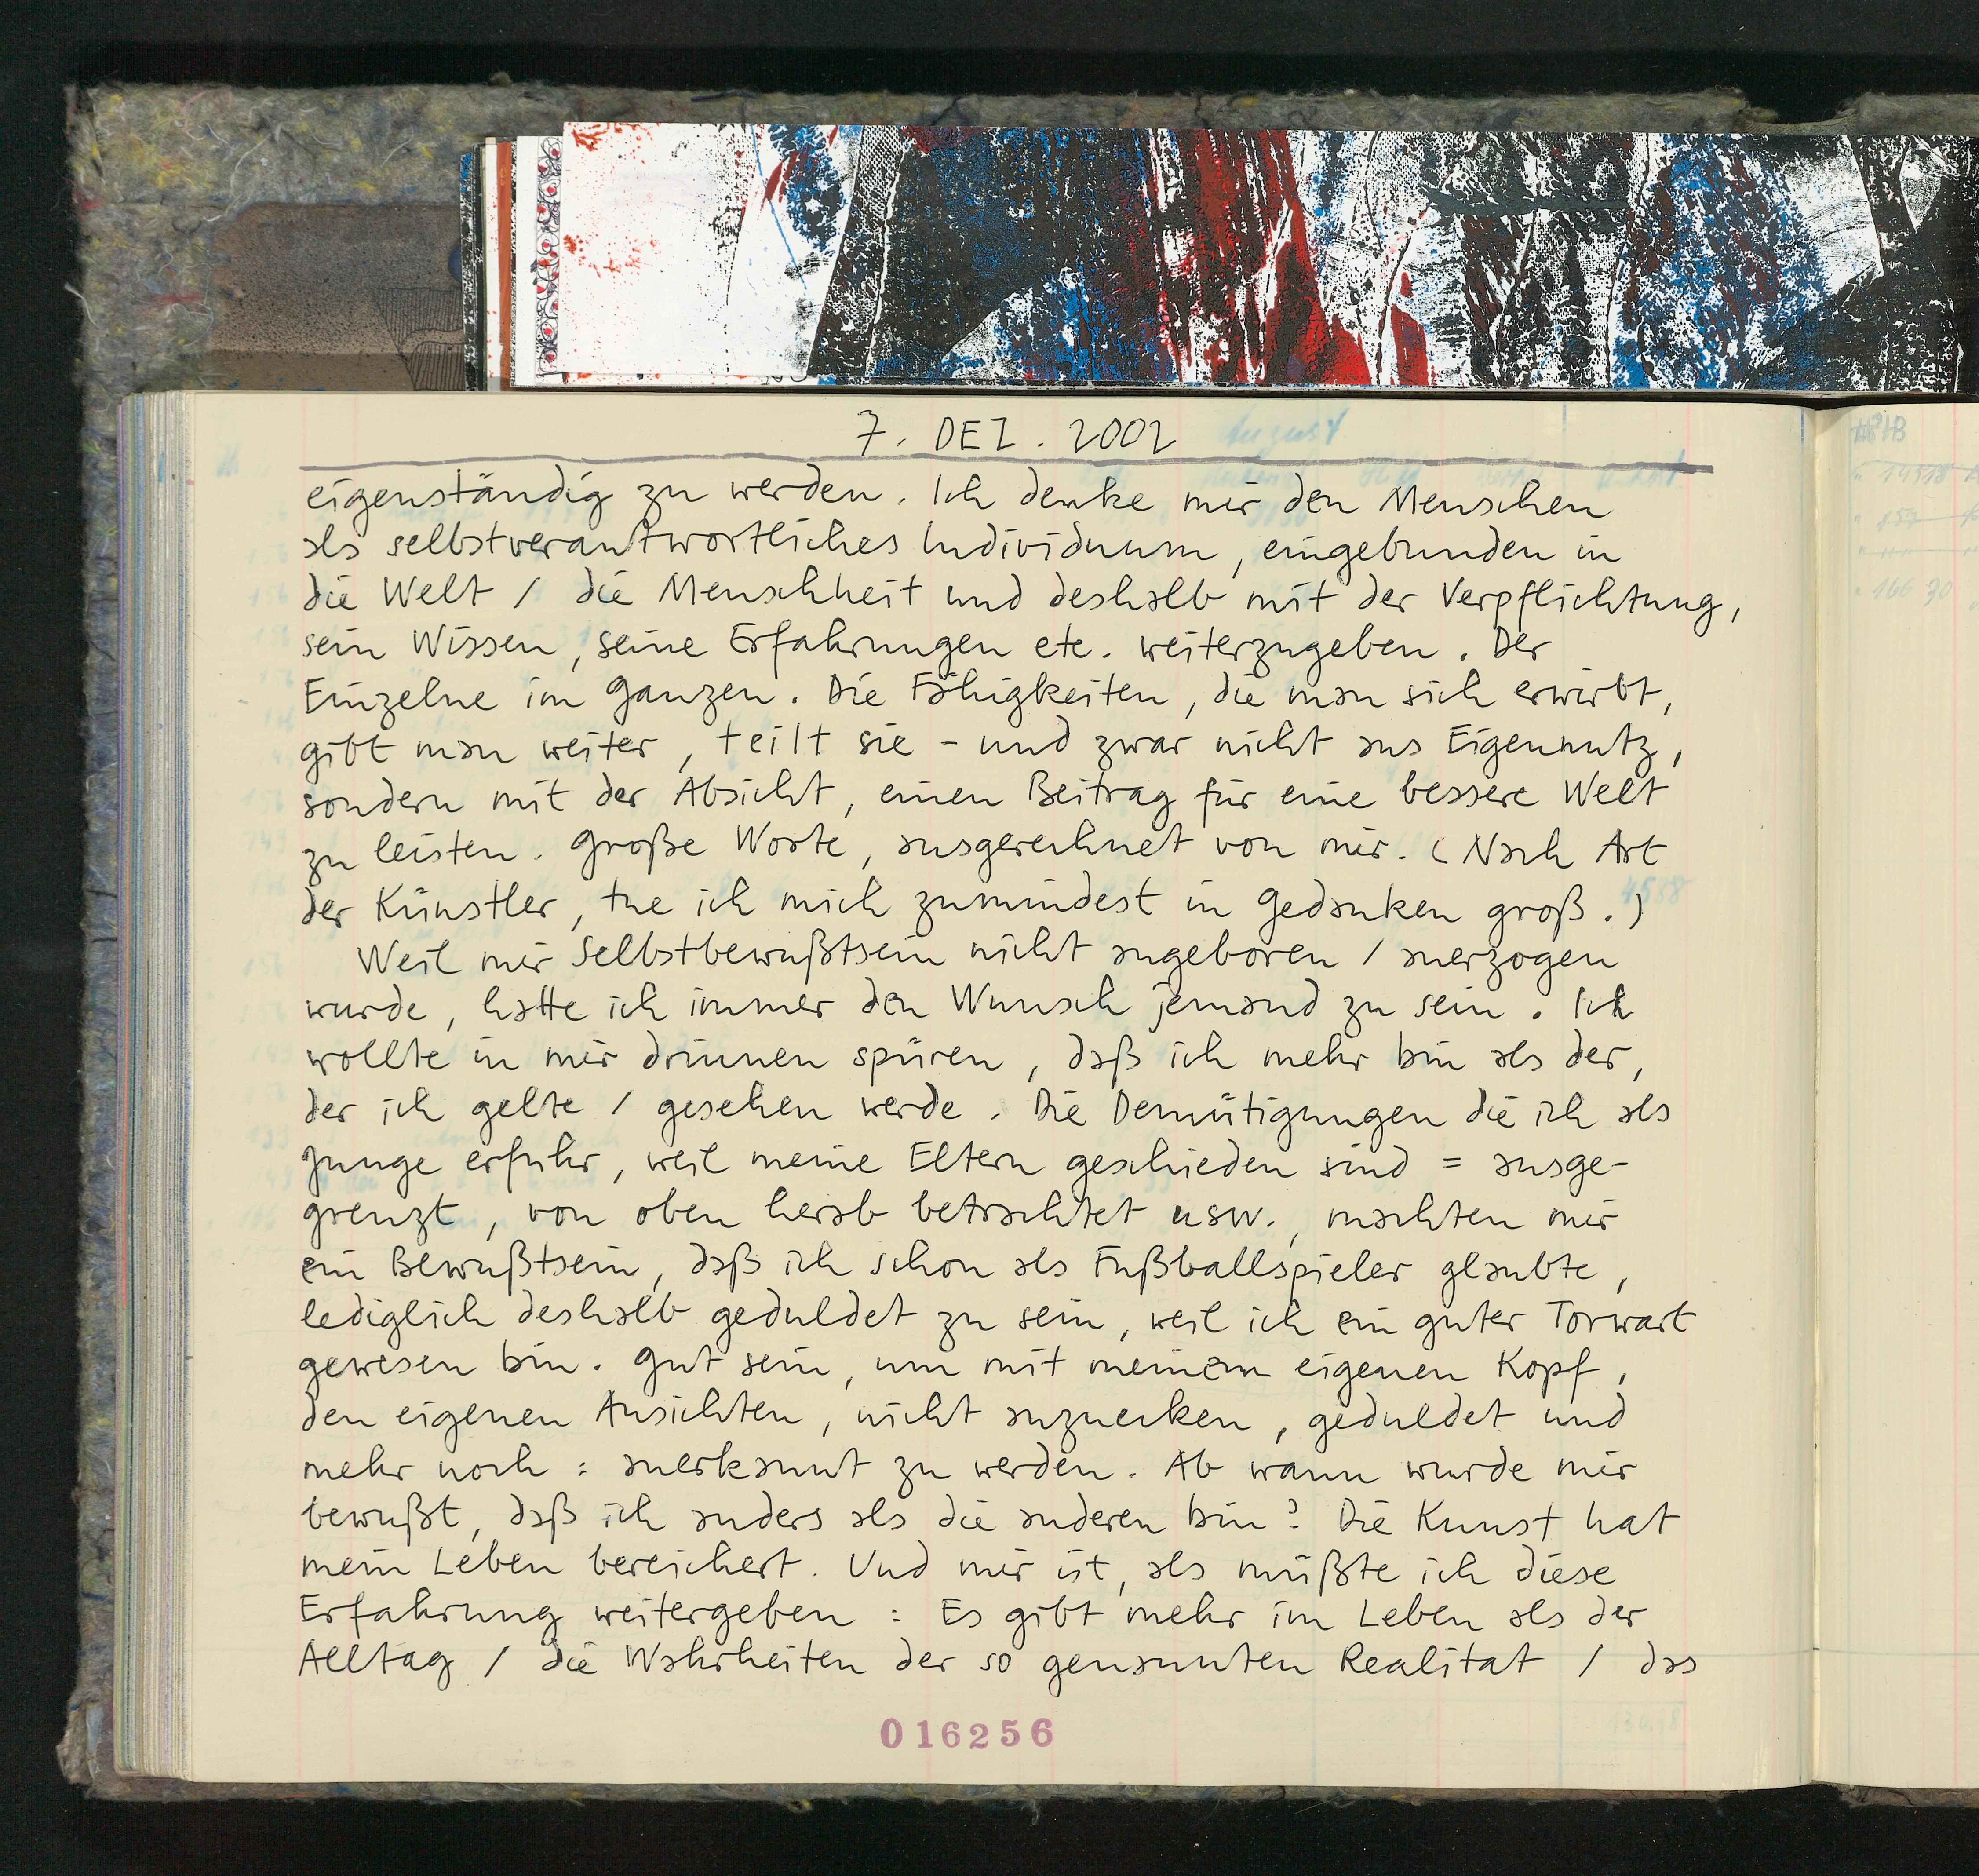 7. DEZ. 2002
eigenständig zu werden. Ich denke mir den Menschen
als selbstverantwortliches Individuum, eingebunden in
die Welt / die Menschheit und deshalb mit der Verpflichtung,
sein Wissen, seine Erfahrungen etc. weiterzugeben. Der
Einzelne im Ganzen. Die Fähigkeiten, die man sich erwirbt,
gibt man weiter, teilt sie - und zwar nicht aus Eigennutz,
sondern mit der Absicht, einen Beitrag für eine bessere Welt
zu leisten. Große Worte, ausgerechnet von mir. (Nach Art
der Künstler, tue ich mich zumindest in Gedanken groß.)
Weil mir Selbstbewußtsein nicht angeboren / anerzogen
wurde, hatte ich immer den Wunsch jemand zu sein. Ich
wollte in mir drinnen spüren, daß ich mehr bin als der,
der ich gelte / gesehen werde. Die Demütigungen die ich als
Junge erfuhr, weil meine Eltern geschieden sind = ausge-
grenzt, von oben herab betrachtet usw., machten mir
ein Bewußtsein, daß ich schon als Fußballspieler glaubte,
lediglich deshalb geduldet zu sein, weil ich ein guter Torwart
gewesen bin. Gut sein, um mit meinem eigenen Kopf,
den eigenen Ansichten, nicht anzuecken, geduldet und
mehr noch: anerkannt zu werden. Ab wann wurde mir
bewußt, daß ich anders als die anderen bin? Die Kunst hat
mein Leben bereichert. Und mir ist, als müßte ich diese
Erfahrung weitergeben: Es gibt mehr im Leben als der
Alltag / die Wahrheiten der so genannten Realität / das
016256